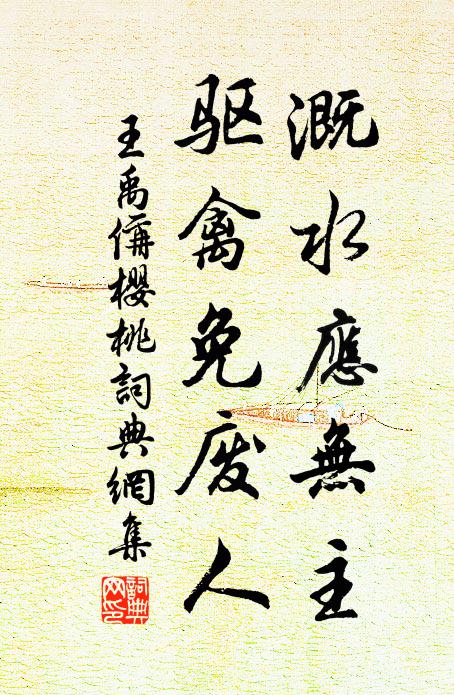 溉水應無主
驱禽免废人
王禹偁櫻桃詞典網集
詞典网印